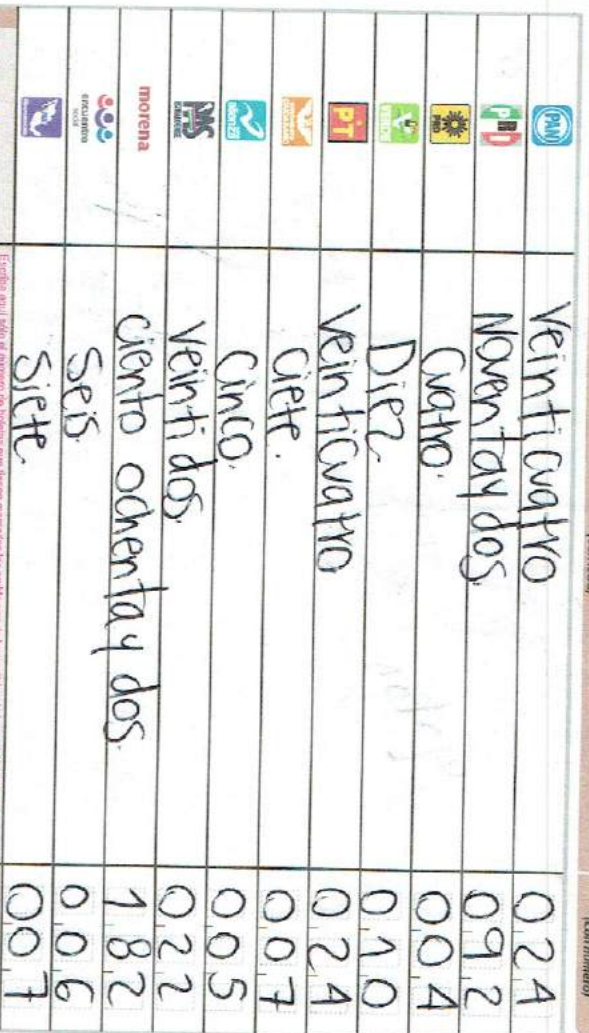 (con número)
PAN Veinticuatro 024
PRI Noventa y dos 092
PRD Cuatro. 004
VERDE Diez 010
PT Veinticuatro 024
Ciete. 007
alianza Cinco. 005
PAS SINALOENSE Veintidos 022
morena Ciento ochenta y dos. 182
encuentro social Seis 006
Siete 007